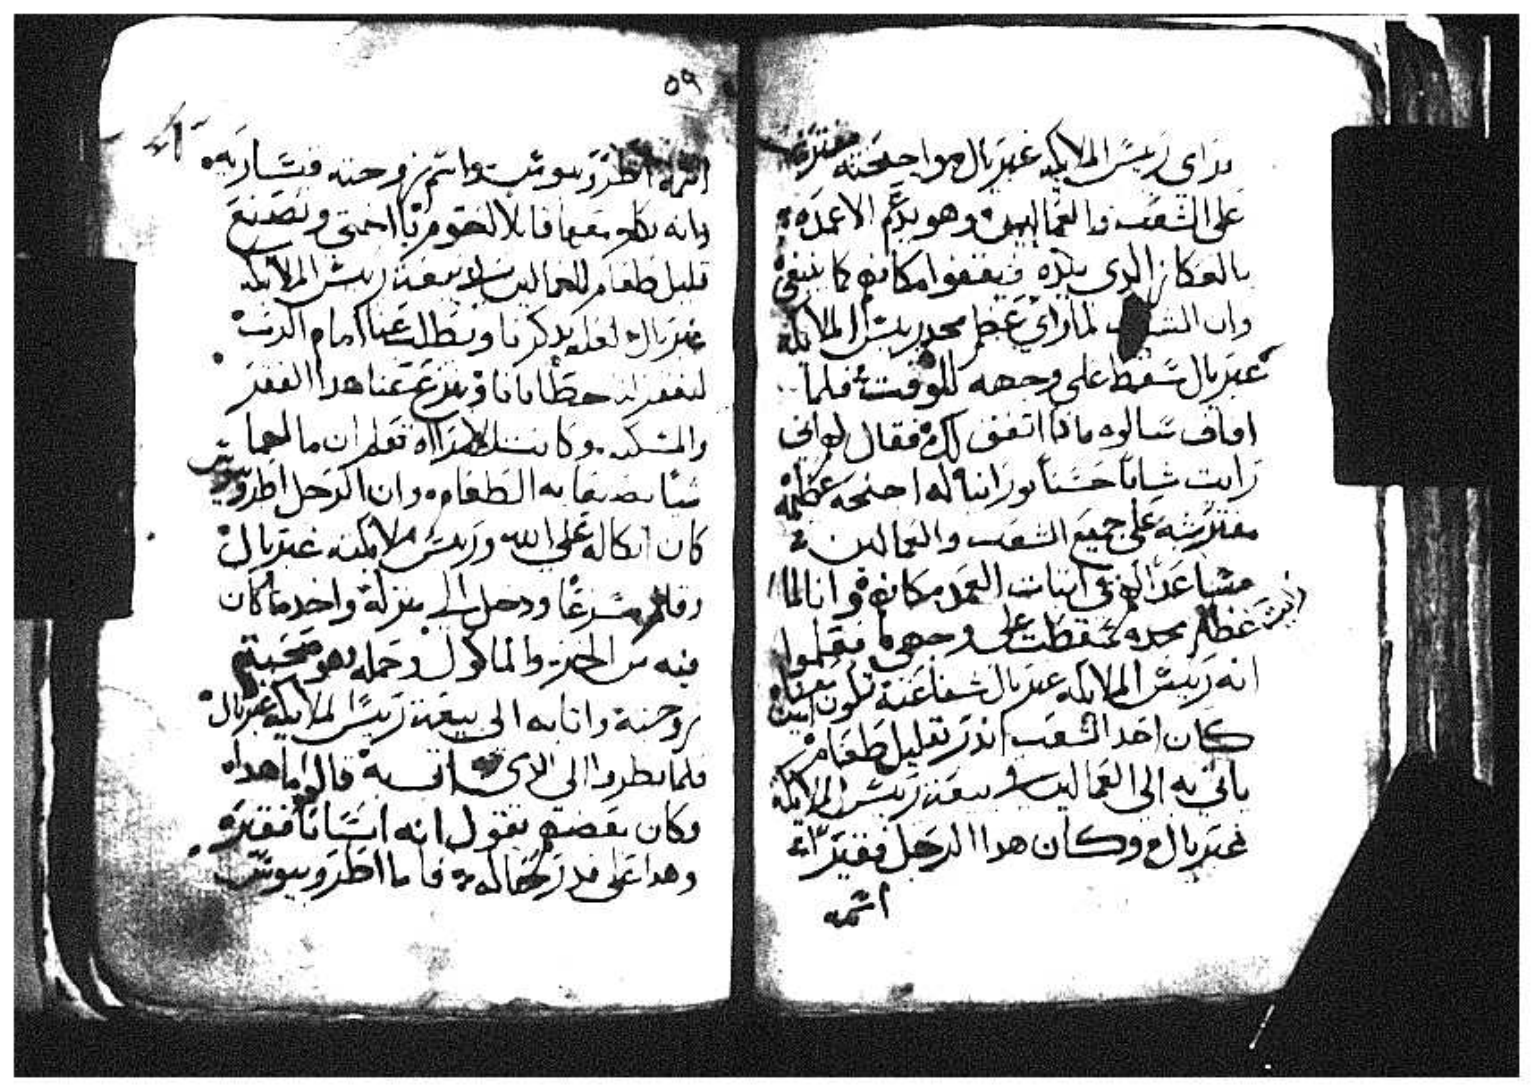 فراى رييس الملايكه غبريال مواجنحته مفترشة
على الشعب والعمالين وهو يدعم الاعمده
بالعكاز الدى بيده فيقفوا مكانهم كما ينبغى
وان الشاب لما راى عظم مجد رييس الملايكه
غبريال سقط على وجهه للوقت فلما
افاق سالوه مادا اتفق لك فقال لهم انى
رايت شابا حسنا نورانيا له اجنحه عظيمه
مفترشه على جميع الشعب والعمالين
مساعدا لهم فى اتبات العمد مكانهم وانا لما
رايت عظم مجده سقطت على وجهى فعلموا
انه رييس الملايكه غبريال شفاعته تكون معنا امين
كان احد الشعب اندر بقليل طعام
ياتى به الى العمالين فى بيعة رييس الملايكه
غبريال وكان هدا الرجل فقير
اسمه
٥٩
اسمه اطروبيوس واسم زوجته
وانه تكلم معها قايلا لها قومى يا اختى ونصنع
قليل طعام للعمالين فى بيعة رييس الملايكه
غبريال لعله يدكرنا ويطلب عنا امام الرب
ليغفر لنا خطايانا وينزع عنا هدا الفقر
والمسكنه وكانت الامراه تعلم ان ما لهما
شيا يصنعا به الطعام وان الرجل اطروبيوس
كان اتكاله على الله ورييس ملايكته غبريال
وقام مسرعا ودخل الى منزله واخد ما كان
فيه من الخبز والماكول وحمله هو وصحبته
زوجته واتا به الى بيعة رييس الملايكه غبريال
فلما نظروا الى الدى اتى به قالوا ما هدا
وكان بعضهم يقول انه انسانا فقير
وهدا على قدر حاله فاما اطروبيوس